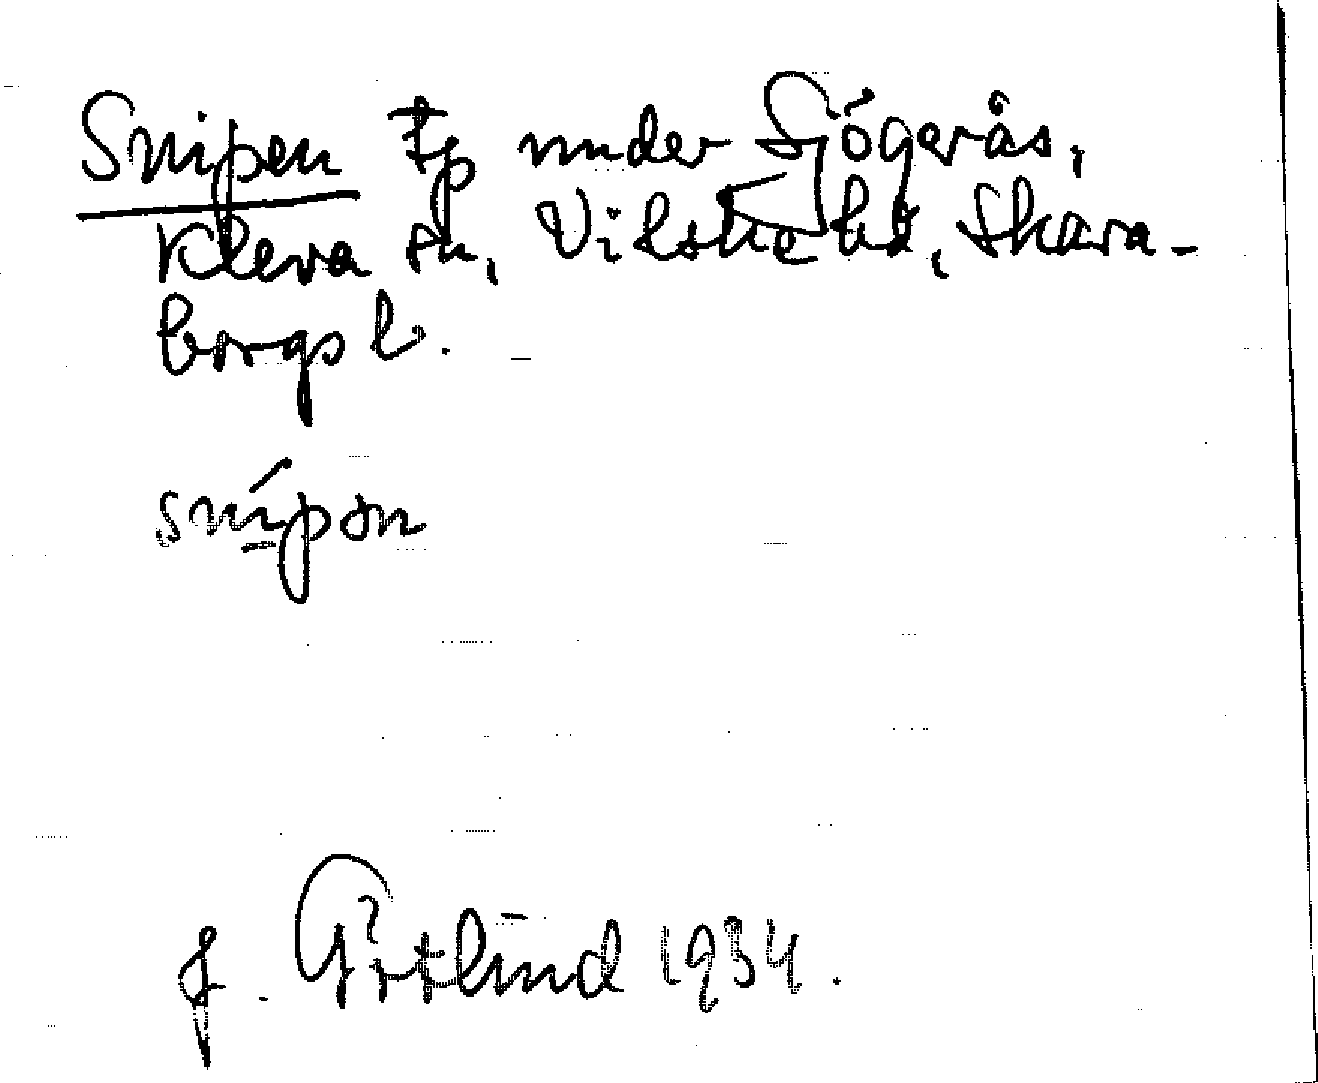 Snipen Tp under Sjögerås,
Kleva sn, Vilske hd, Skara-
borgs l.
snípən
J. Götlind 1934.